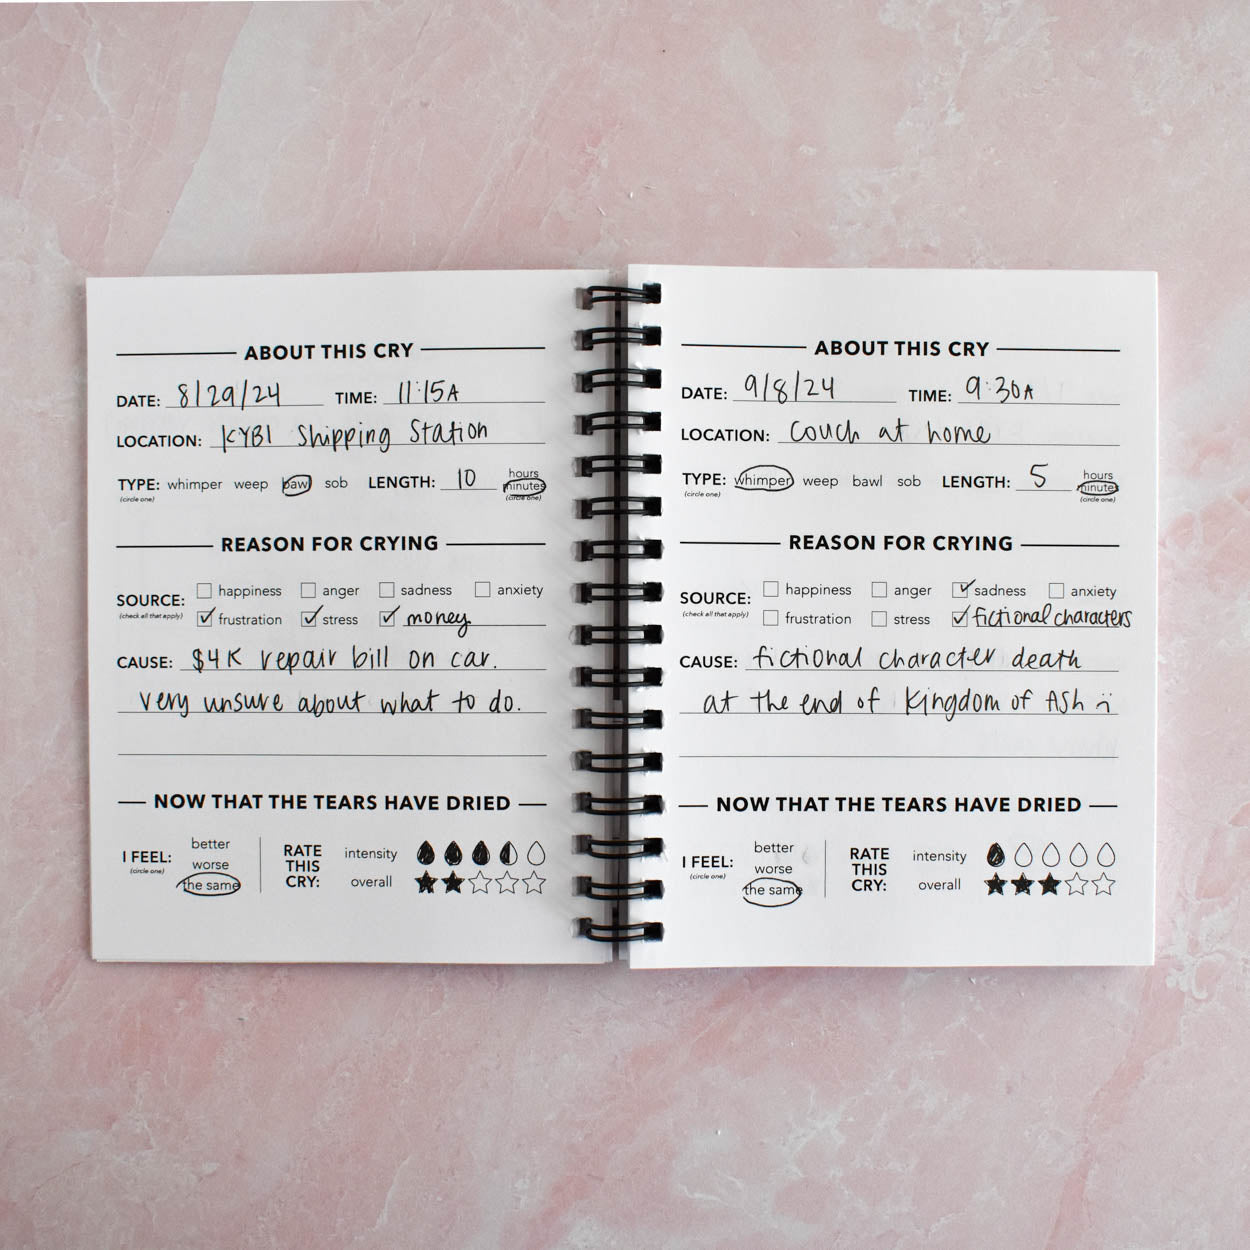 ABOUT THIS CRY
DATE: 8/29/24 TIME: 11:15A
LOCATION: KYBI Shipping Station
TYPE: whimper weep bawl sob LENGTH: 10 hours
(circle one) minutes
(circle one)
REASON FOR CRYING
SOURCE: happiness anger sadness anxiety
(check all that apply) frustration stress money
CAUSE: $4K repair bill on car.
very unsure about what to do.
NOW THAT THE TEARS HAVE DRIED
I FEEL: better
(circle one) worse
the same
RATE THIS CRY: intensity
overall
ABOUT THIS CRY
DATE: 9/8/24 TIME: 9:30A
LOCATION: couch at home
TYPE: whimper weep bawl sob LENGTH: 5 hours
(circle one) minutes
(circle one)
REASON FOR CRYING
SOURCE: happiness anger sadness anxiety
(check all that apply) frustration stress fictional characters
CAUSE: fictional character death
at the end of Kingdom of Ash :(
NOW THAT THE TEARS HAVE DRIED
I FEEL: better
(circle one) worse
the same
RATE THIS CRY: intensity
overall